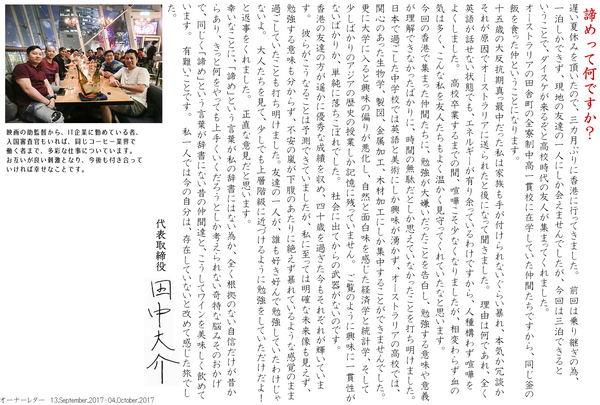 諦めって何ですか?
遅い夏休みを頂いたので、三カ月ぶりに香港に行ってきました。 前回は乗り継ぎの為、
一泊しかできず、現地の友達の一人にしか会えませんでしたが、今回は三泊できると
いうことで、ダイスケが来るぞと高校時代の友人が集まってくれました。
オーストラリアの田舎町の全寮制中高一貫校に在学していた仲間たちですから、同じ釜の
飯を食った仲ということになります。
十五歳の大反抗期真っ最中だった私は家族も手が付けられないぐらい暴れ、本気か冗談か
それが原因でオーストラリアに送られたと後になって聞きました。 理由は何であれ、全く
英語が話せない状態でも、エネルギーが有り余っているわけですから、人種構わず喧嘩を
よくしました。 高校卒業するまでの間、喧嘩こそ少なくなりましたが、相変わらず血の
気は多く、こんな私を友人たちもよく温かく見守ってくれていたなと思います。
今回の香港で集まった仲間たちに、勉強が大嫌いだったことを告白し、勉強する意味や意義
が理解できなかったばかりに、時間の無駄だとしか思えていなかったことを打ち明けました。
日本で過ごした中学校では英語と美術にしか興味が湧かず、オーストラリアの高校では、
関心のあった生物学、製図、金属加工、木材加工にしか集中することができませんでした。
更に大学に入ると興味の偏りが悪化し、自然と面白味を感じた経済学と統計学、そして
少しばかりのアジアの歴史の授業しか記憶に残っていません。 ご覧のように興味に一貫性が
ないばかりか、単純に落ちこぼれでした。 社会に出てからの武器がないのです。
香港の友達の方が遥かに優秀な成績を収め、四十歳を過ぎた今もそれぞれが輝いていま
す。 彼らがこうなることは予測できていましたが、私に至っては明確な未来像も見えず、
勉強する意味も分からず、不安の嵐が下腹のあたりに絶えず暴れているような感覚のまま
過ごしていたことも打ち明けました。友達の一人が、誰も好き好んで勉強していたわけじゃ
ないよ。 大人たちを見て、少しでも上層階級に近づけるように勉強をしていただけだよ!
と返事をくれました。 正直な意見だと思います。
幸いなことに、「諦める」という言葉が私の辞書にはない為か、全く根拠のない自信だけが昔か
らあり、きっと何をやっても上手くいくだろうとしか考えられない奇特な悩みそのおかげ
で、同じく「諦め」という言葉が辞書にない昔の仲間達と、こうしてワインを美味しく飲めて
います。 有難いことです。 私一人では今の自分は、存在していないと改めて感じた旅でし
た。
映画の助監督から、IT企業に勤めている者、
入国審査官もいれば、同じコーヒー業界で
働く者まで、多彩な仕事についています。
お互いが良い刺激となり、今後も付き合って
いければ幸せなことです。
代表取締役 田中大介
オーナーレター 13,September,2017-04,October,2017